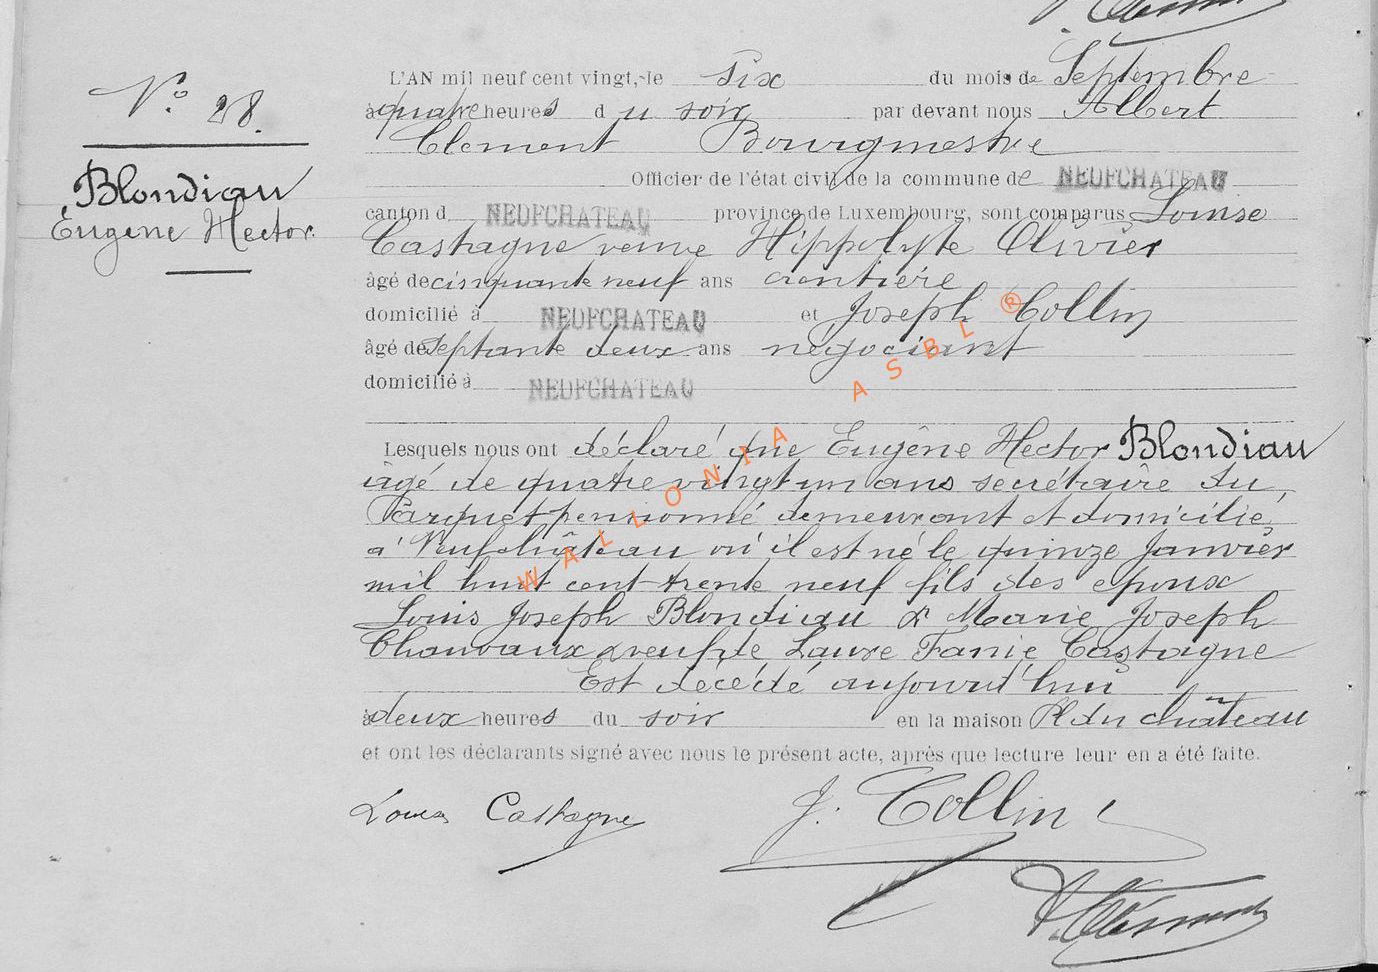 N° 28.
Blondiau
Eugène Hector.
L'AN mil neuf cent vingt, le six du mois de Septembre
à quatre heures du soir par devant nous Albert
Clement Bourgmestre
Officier de l'état civil de la commune de NEUFCHATEAU
canton d NEUFCHATEAU province de Luxembourg, sont comparus Louise
Castagne veuve Hippolyte Olivier
âgé de cinquante neuf ans rentière
domicilié à NEUFCHATEAU et Joseph Collin
âgé de septante deux ans négociant
domicilié à NEUFCHATEAU
Lesquels nous ont déclaré que Eugène Hector Blondiau
âgé de quatre vingt un ans secrétaire du
Parquet pensionné demeurant et domicilié
à Neufchâteau où il est né le quinze Janvier
mil huit cent trente neuf fils des époux
Louis Joseph Blondiau & Marie Joseph
veuf de Laure Fanie Castagne
Est décédé aujourd'hui
à deux heures du soir en la maison Pl. du château
et ont les déclarants signé avec nous le présent acte, après que lecture leur en a été faite.
Louise Castagne J. Collin
A. Clement
WALLONIA ASBL ®